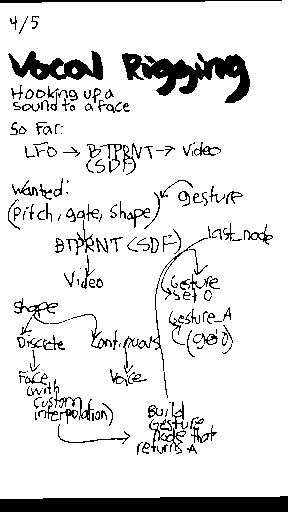 4/5
Vocal Rigging
Hooking up a
sound to a face
So Far:
LFO → BTPRNT → Video
(SDF)
Wanted:
(Pitch, gate, shape)
gesture
BTPRNT (SDF)
last_node
Video
Gesture
set 0
Shape
Gesture_A
(get 0)
Discrete
Continuous
Face
(with
custom
interpolation)
Voice
Build
Gesture
Node that
returns A